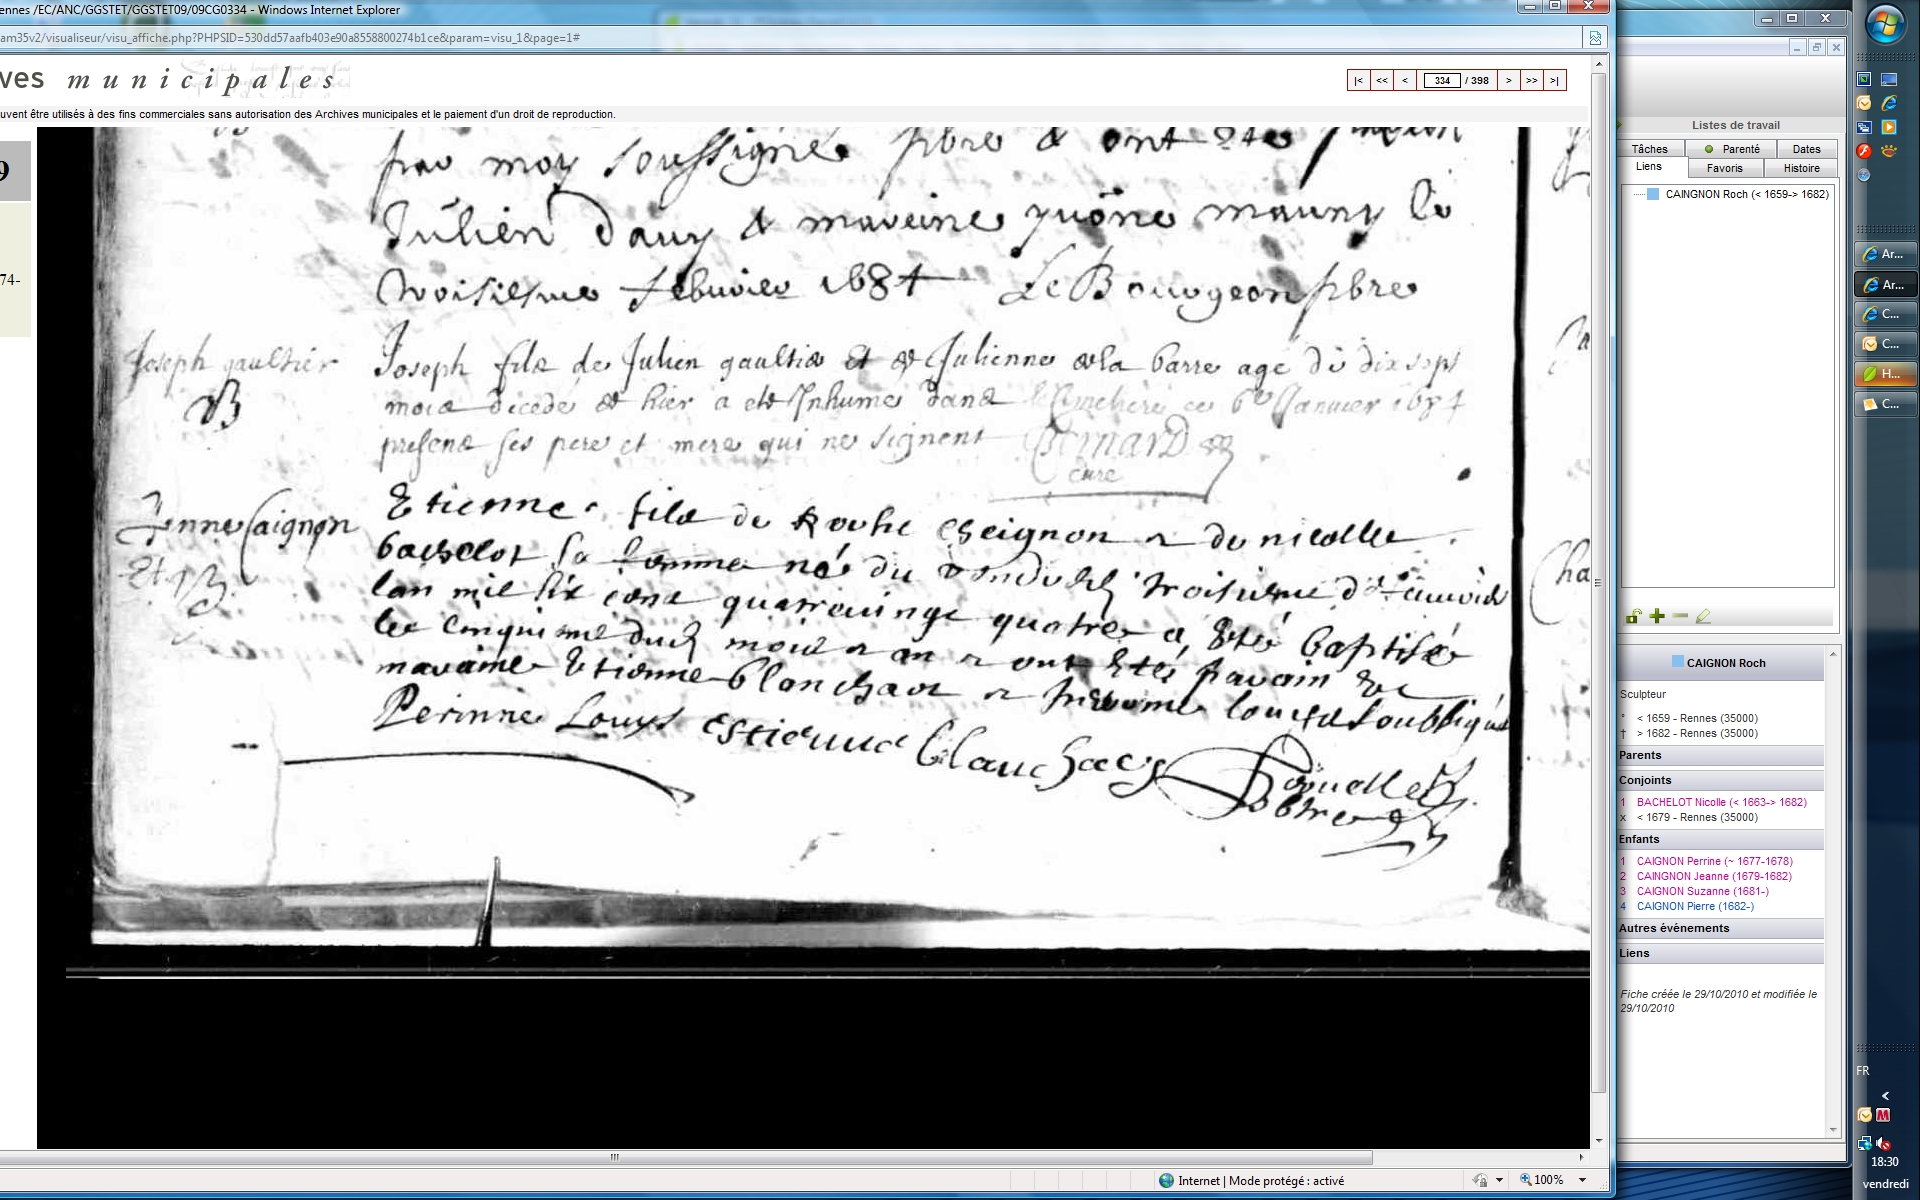 ennes /EC/ANC/GGSTET/GGSTET09/09CG0334 - Windows Internet Explorer
am35v2/visualiseur/visu_affiche.php?PHPSID=530dd57aafb403e90a8558800274b1ce&param=visu_1&page=1#
ves municipales
334 / 398
uvent être utilisés à des fins commerciales sans autorisation des Archives municipales et le paiement d'un droit de reproduction.
9
74-
par moy soussigné pbre & ont
Julien Davy & mareine mauny le
troisiesme febvrier 1684 Le Bourgeon pbre
Joseph gaultier
Joseph fils de Julien gaultier et de Julienne de la barre agé de dix sept
mois décédé d hier a eté Inhumé dans le Cimetière ce 6e Janvier 1684
presens ses pere et mere qui ne signent Bernard
curé
Etienne fils de Roche Cheignon & de nicolle
bachelot sa femme né du troisieme
lan mil six cens quatrevingt quatre a été baptisé
le cinquieme dud mois & an & ont étés parain &
maraine Etienne blanchart &
Perinne Louys Estienne blanchart
pbre
Listes de travail
Tâches
Parenté
Dates
Liens
Favoris
Histoire
CAINGNON Roch (< 1659-> 1682)
CAIGNON Roch
Sculpteur
° < 1659 - Rennes (35000)
† > 1682 - Rennes (35000)
Parents
Conjoints
1 BACHELOT Nicolle (< 1663-> 1682)
x < 1679 - Rennes (35000)
Enfants
1 CAIGNON Perrine (~ 1677-1678)
2 CAINGNON Jeanne (1679-1682)
3 CAIGNON Suzanne (1681-)
4 CAIGNON Pierre (1682-)
Autres événements
Liens
Fiche créée le 29/10/2010 et modifiée le
29/10/2010
Ar...
Ar...
C...
C...
H...
C...
FR
18:30
vendredi
Internet | Mode protégé : activé
100%